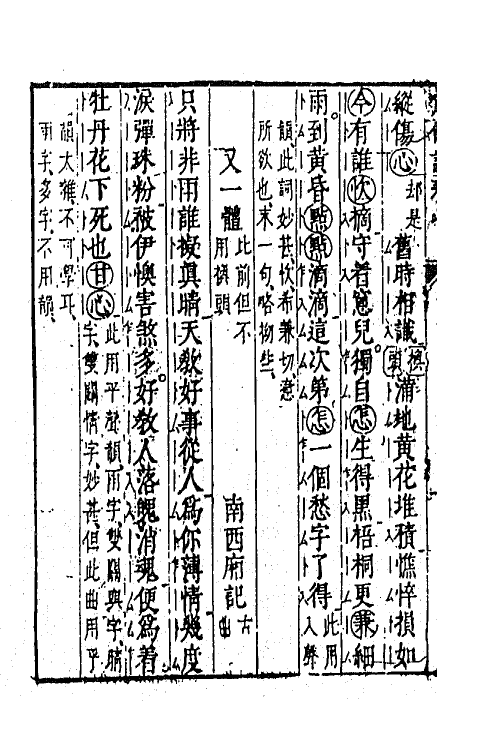 縱傷心却是舊時相識換頭滿地黃花堆積憔悴損如
今有誰忺摘守着窓兒獨自怎生得黑梧桐更兼細
雨到黃昏點點滴滴這次第怎一個愁字了得此用入聲
韻此詞妙甚忺希兼切意
所欲也末一句略拗些
又一體此前但不用換頭 南西廂記古曲
只將非雨誰擬眞晴天敎好事從人爲你薄情幾度
淚彈珠粉被伊懊害煞多好敎人落魄消魂便爲着
牡丹花下死也甘心此用平聲韻雨字雙關與字晴字雙關情字妙甚但此曲用平
韻太雜不可學耳
雨字多字不用韻